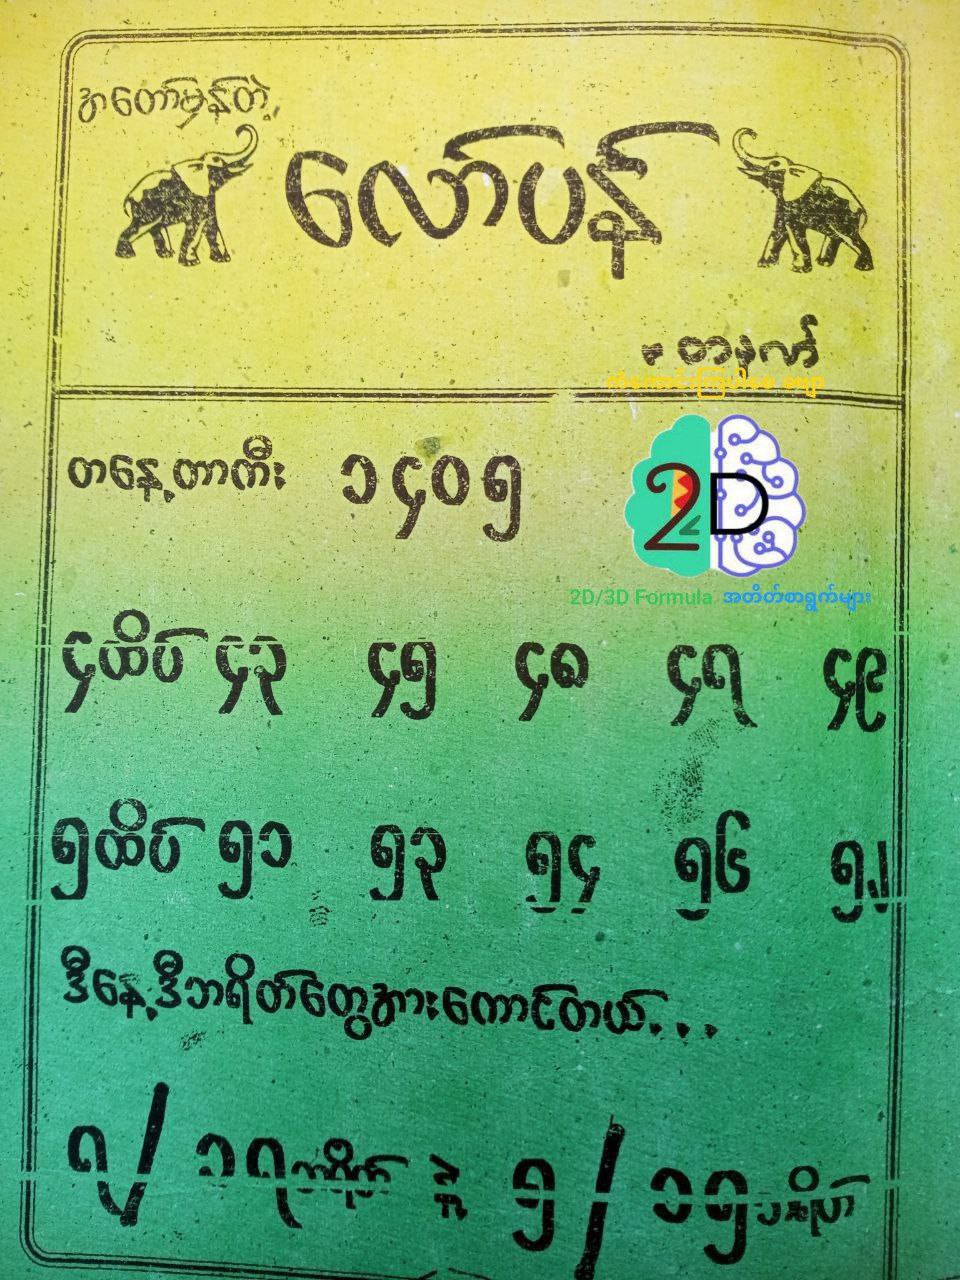 အတော်မှန်တဲ့
လော်ပန်
ကံကောင်းကြပါစေ ဗျာ
တနေ့တာကီး ၁၄၀၅
2D
2D/3D Formula အတိတ်စာရွက်များ
၄ထိပ် ၄၃ ၄၅ ၄၈ ၄၇ ၄၉
၅ထိပ် ၅၁ ၅၃ ၅၄ ၅၆
ဒီနေ့ဒီဘရိတ်တွေအားကောင်တယ်...
၇/၁၇ဘရိတ် နဲ့ ၅/၁၅ဘရိတ်